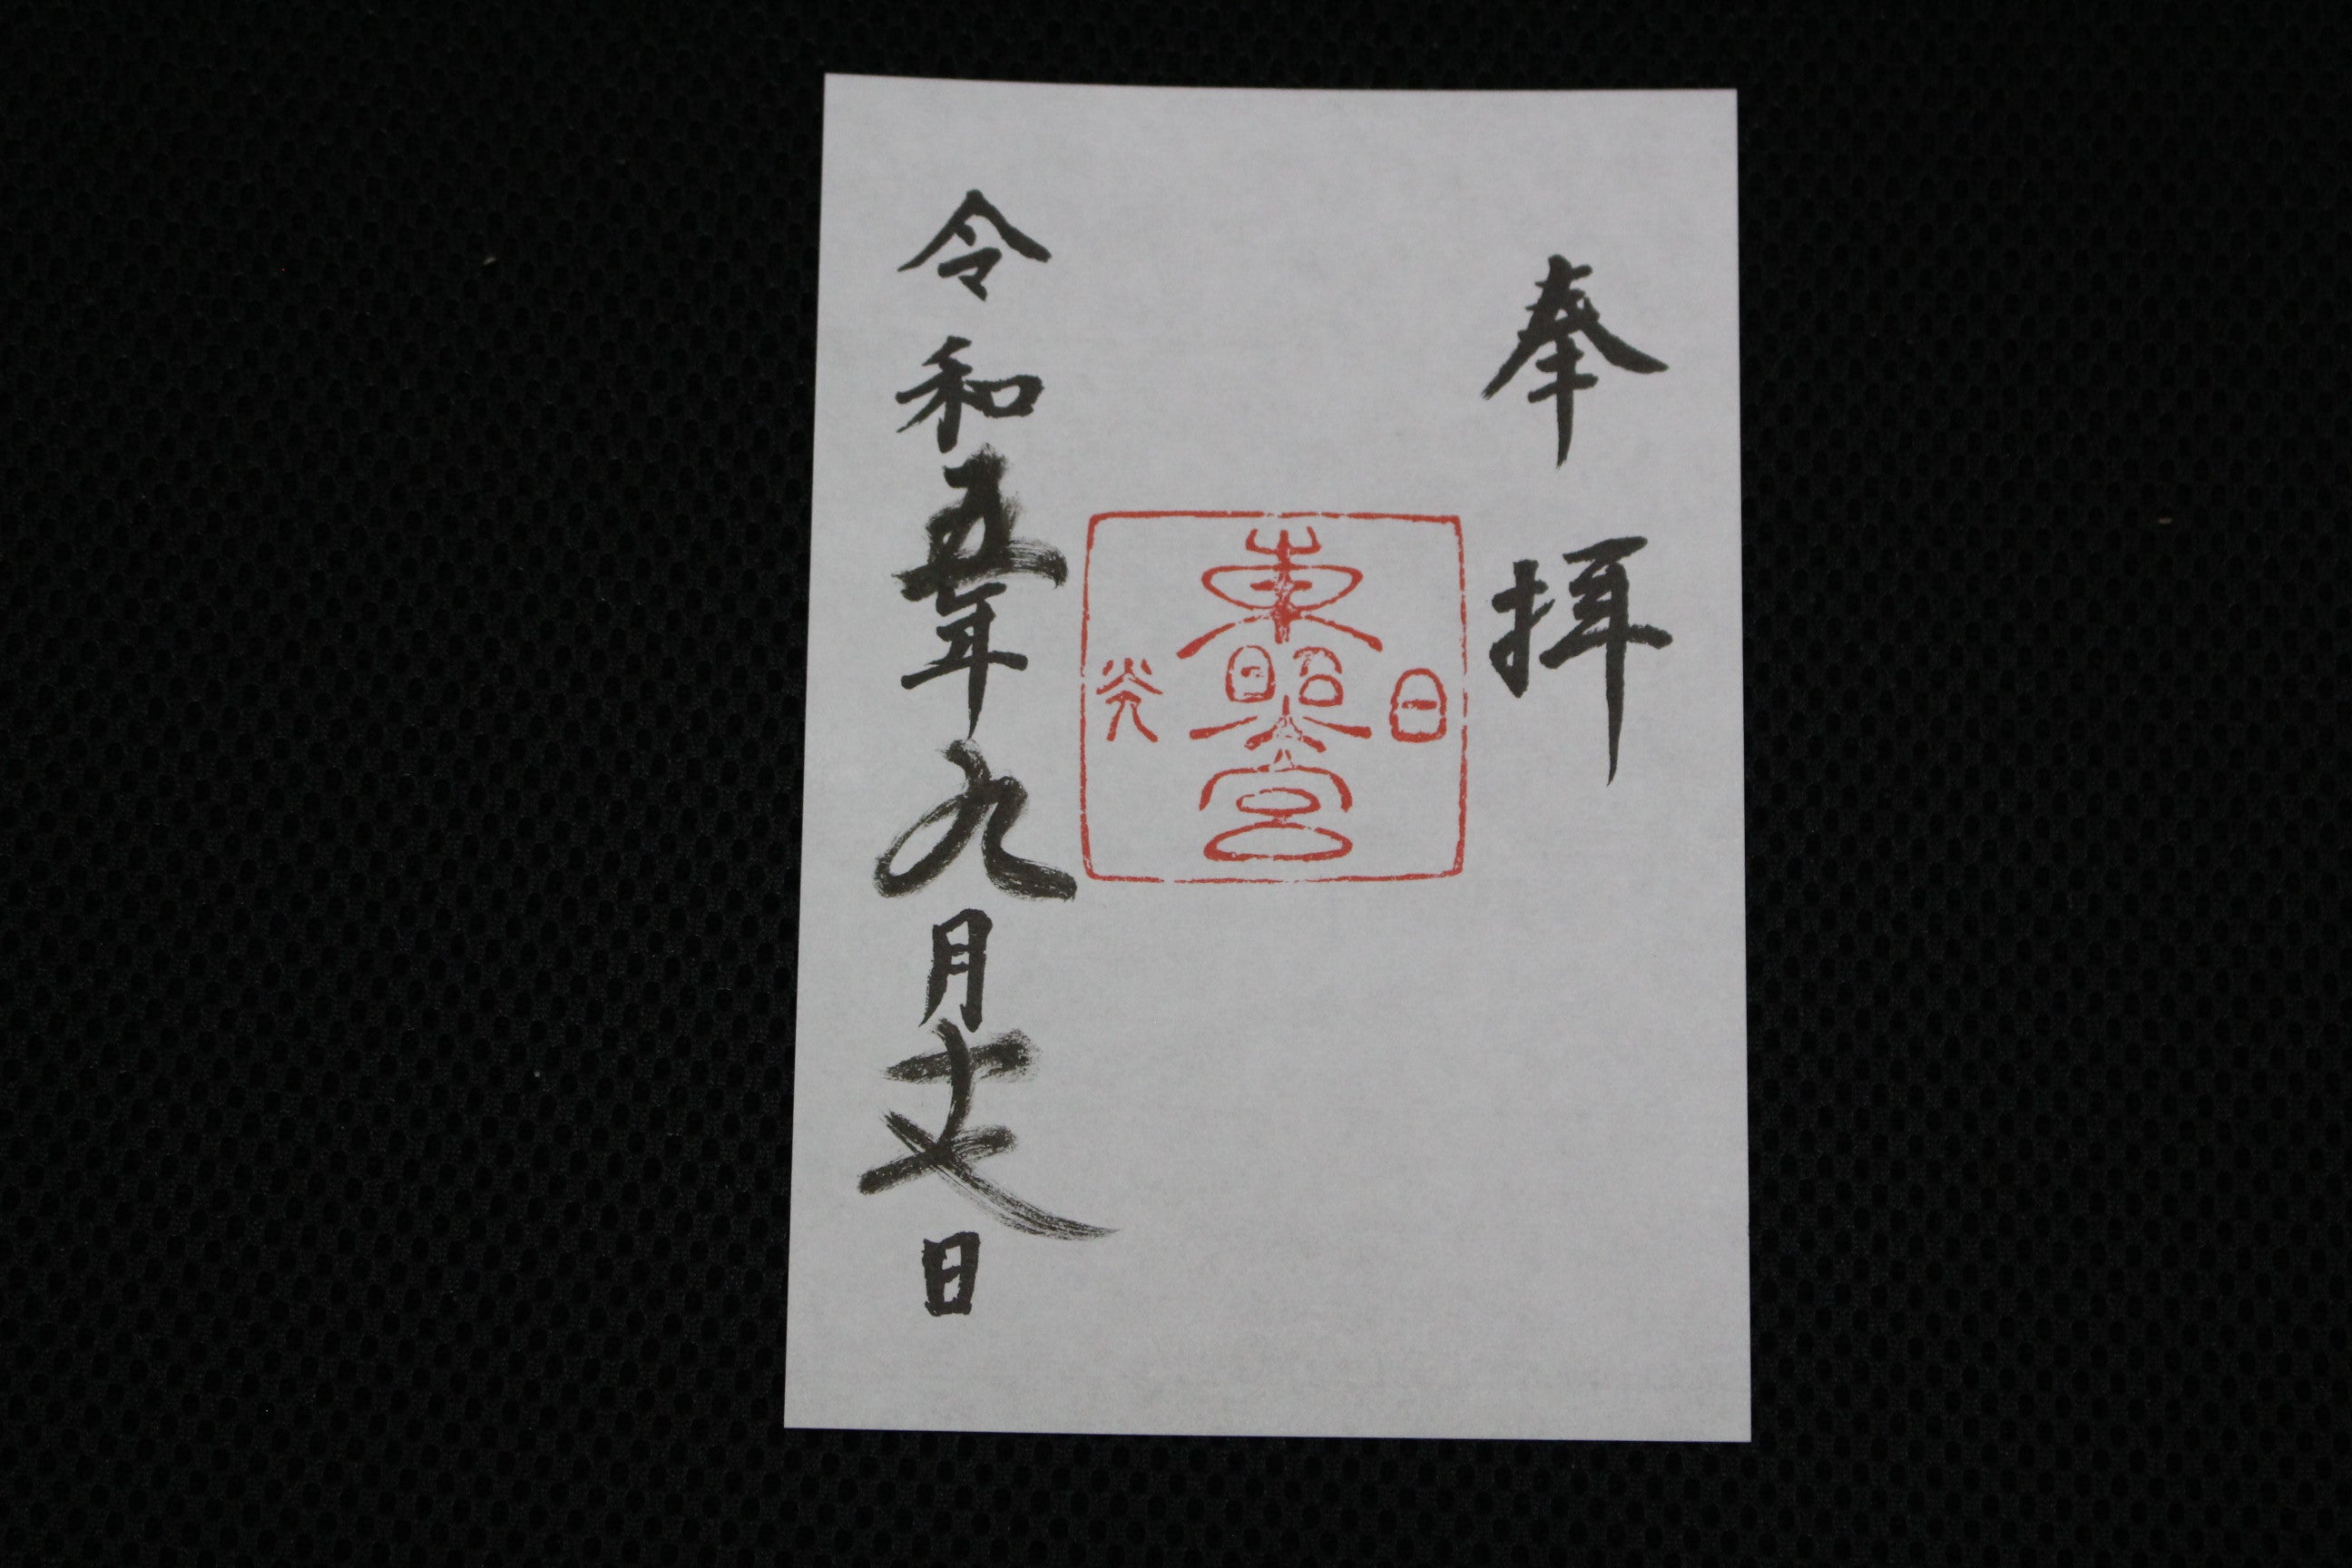 奉拝
日
東照宮
光
令和五年九月十七日